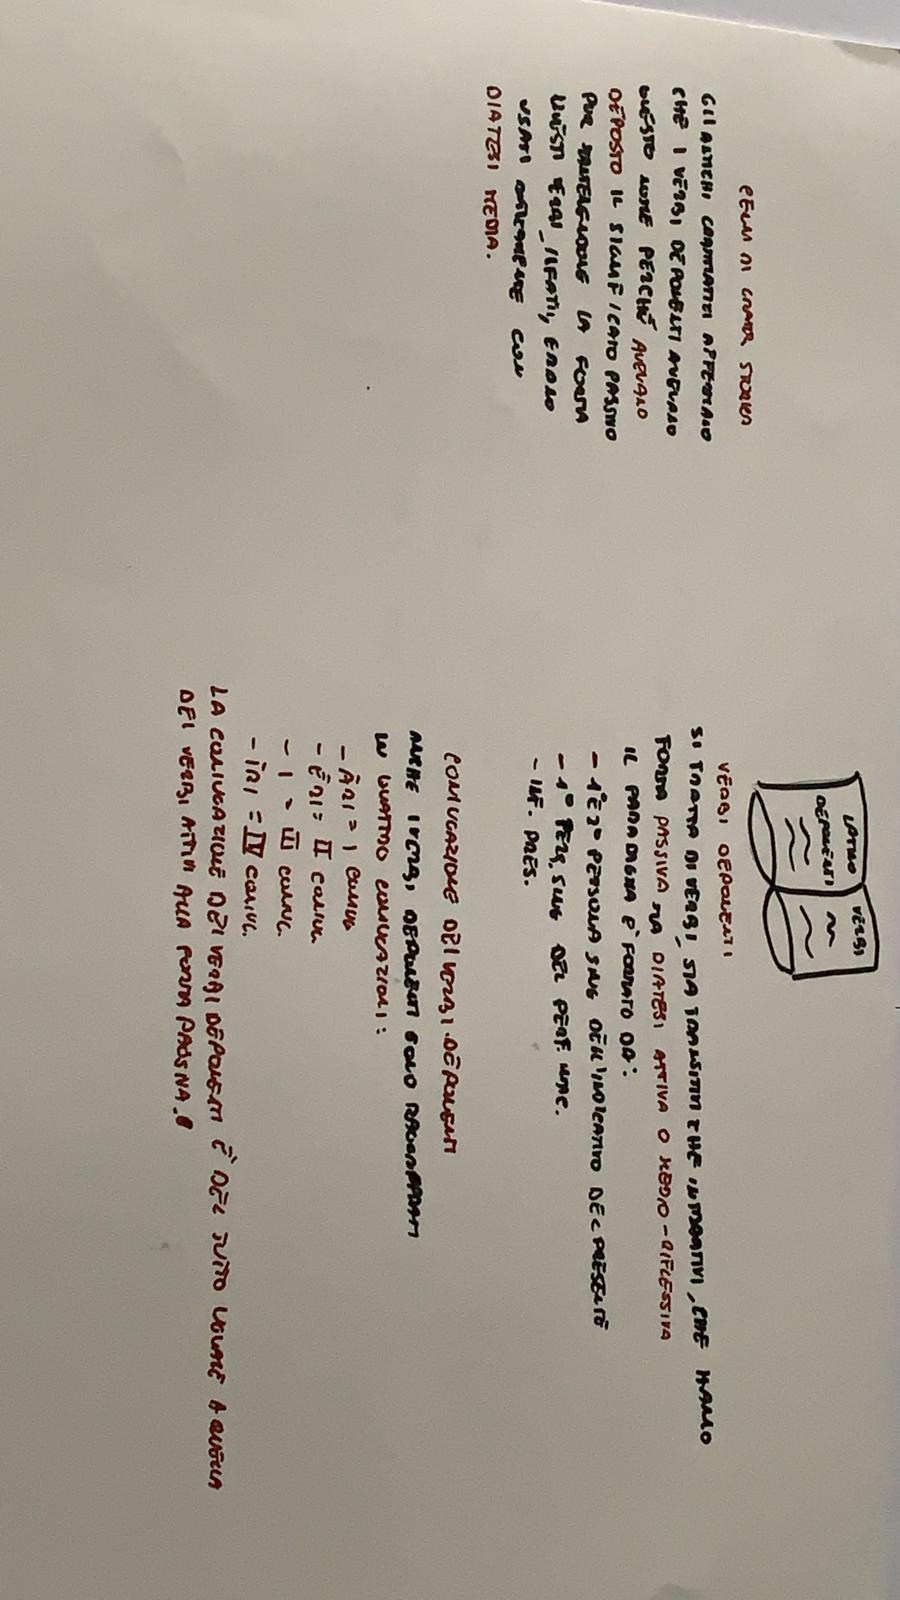 LATINO
DEPONENTI
VERBI
VERBI DEPONENTI
SI TRATTA DI VERBI, SIA TRANSITIVI CHE INTRANSITIVI, CHE HANNO
FORMA PASSIVA MA DIATESI ATTIVA O MEDIO-RIFLESSIVA
IL PARADIGMA È FORMATO DA:
- 1ª E 2ª PERSONA SING DELL'INDICATIVO DEL PRESENTE
- 1ª PERS. SING DEL PERF. IND.
- INF. PRES.
CONIUGAZIONE DEI VERBI DEPONENTI
ANCHE I VERBI DEPONENTI SONO RAGGRUPPATI
IN QUATTRO CONIUGAZIONI:
- ĀRI = I CONIUG
- ĒRI = II CONIUG.
- I = III CONIUG.
- ĪRI = IV CONIUG.
LA CONIUGAZIONE DEI VERBI DEPONENTI È DEL TUTTO UGUALE A QUELLA
DEI VERBI ATTIVI ALLA FORMA PASSIVA.
DI GRAMM STORICA
GLI ANTICHI GRAMMATICI AFFERMANO
CHE I VERBI DEPONENTI AVEVANO
QUESTO NOME PERCHÉ AVEVANO
DEPOSTO IL SIGNIFICATO PASSIVO
PUR MANTENENDONE LA FORMA
QUESTI VERBI, INFATTI, ERANO
USATI CON
DIATESI MEDIA.